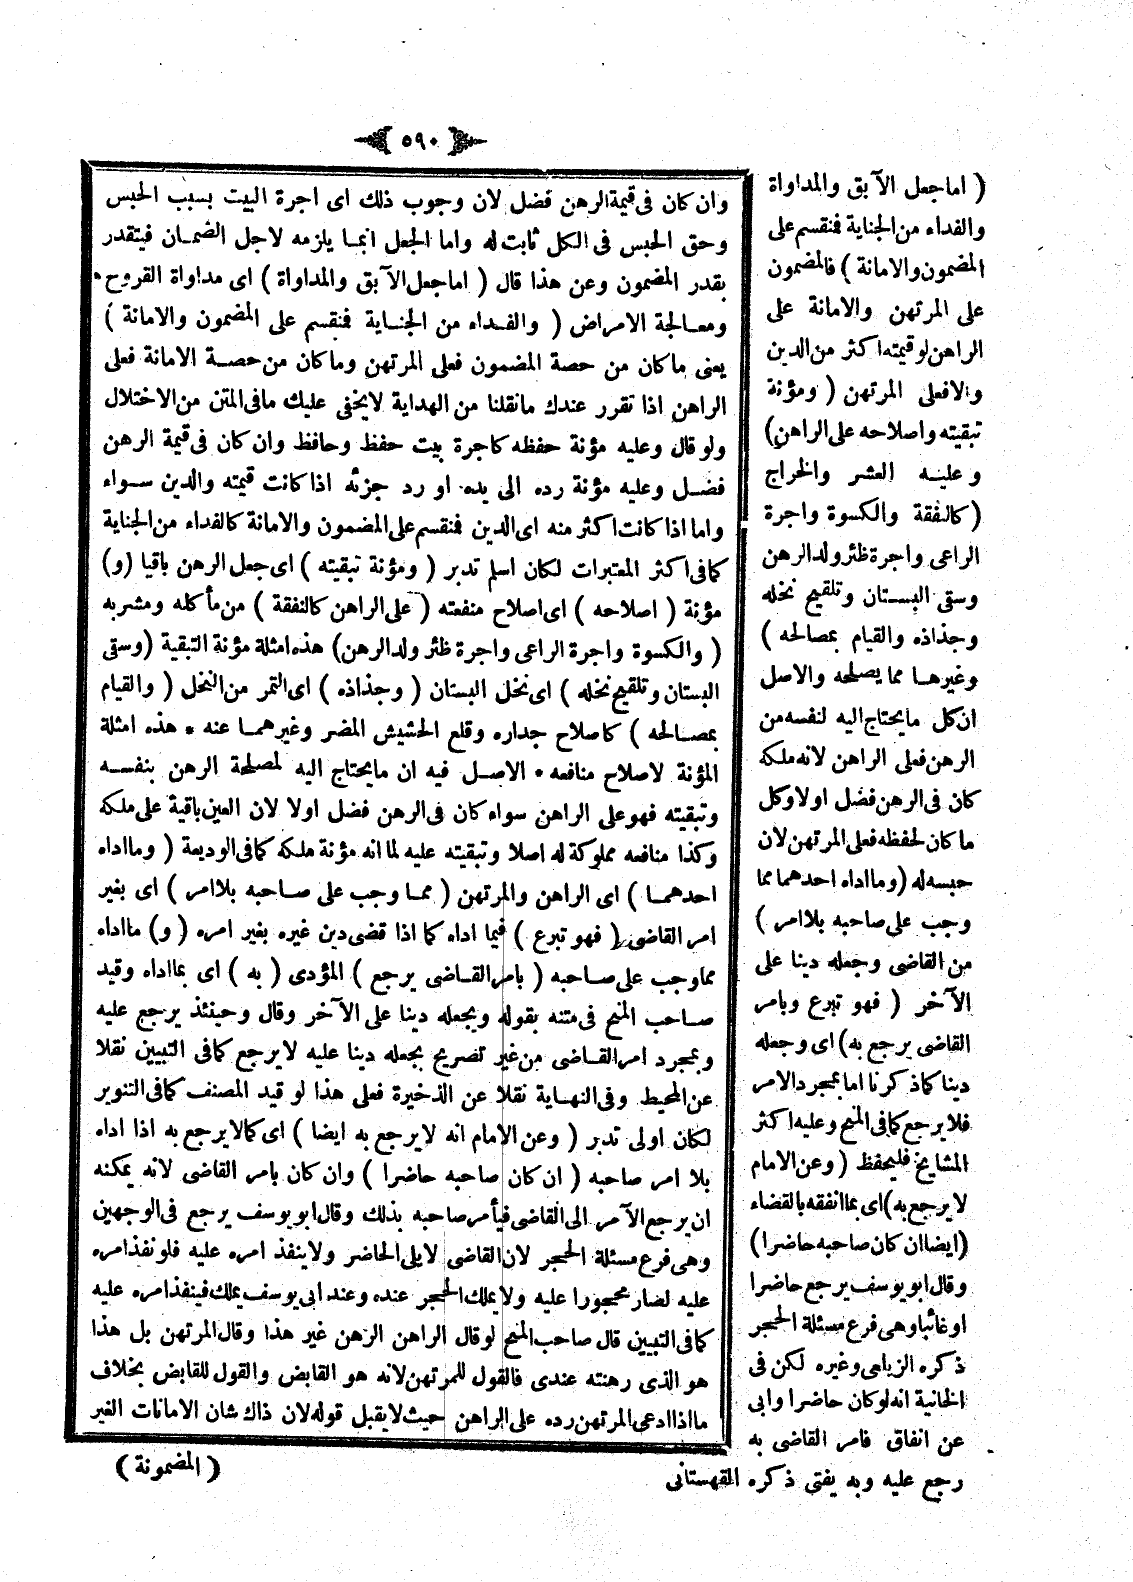 ٥٩٠
وان كان فى قيمة الرهن فضل لان وجوب ذلك اى اجرة البيت بسبب الحبس
وحق الحبس فى الكل ثابت له واما الجعل انما يلزمه لاجل الضمان فيتقدر
بقدر المضمون وعن هذا قال ( اما جعل الآبق والمداواة ) اى مداواة القروح
ومعالجة الامراض ( والفداء من الجناية فنقسم على المضمون والامانة )
يعنى ما كان من حصة المضمون فعلى المرتهن وما كان من حصة الامانة فعلى
الراهن اذا تقرر عندك ما نقلنا من الهداية لا يخفى عليك ما فى المتن من الاختلال
ولو قال وعليه مؤنة حفظه كاجرة بيت حفظ وحافظ وان كان فى قيمة الرهن
فضل وعليه مؤنة رده الى يده او رد جزئه اذا كانت قيمته والدين سواء
واما اذا كانت اكثر منه اى الدين فنقسم على المضمون والامانة كالفداء من الجناية
كما فى اكثر المعتبرات لكان اسلم تدبر ( ومؤنة تبقيته ) اى جعل الرهن باقيا (و)
مؤنة ( اصلاحه ) اى اصلاح منفعته ( على الراهن كالنفقة ) من مأكله ومشربه
( والكسوة واجرة الراعى واجرة ظئر ولد الرهن) هذه امثلة مؤنة التبقية (وسقى
البستان وتلقيح نخله ) اى نخل البستان ( وجذاذه ) اى التمر من النخل ( والقيام
بمصالحه ) كاصلاح جداره وقلع الحشيش المضر وغيرهما عنه * هذه امثلة
المؤنة لاصلاح منافعه * الاصل فيه ان ما يحتاج اليه لمصلحة الرهن بنفسه
وتبقيته فهو على الراهن سواء كان فى الرهن فضل اولا لان العين باقية على ملكه
وكذا منافعه مملوكة له اصلا وتبقيته عليه لما انه مؤنة ملكه كما فى الوديعة ( وما اداه
احدهما ) اى الراهن والمرتهن ( مما وجب على صاحبه بلا امر ) اى بغير
امر القاضى ( فهو تبرع ) فيما اداه كما اذا قضى دين غيره بغير امره ( و) ما اداه
مما وجب على صاحبه ( بامر القاضى يرجع ) المؤدى ( به ) اى بما اداه وقيد
صاحب المنح فى متنه بقوله ويجعله دينا على الآخر وقال وحينئذ يرجع عليه
وبمجرد امر القاضى من غير تصريح بجعله دينا عليه لا يرجع كما فى التبيين نقلا
عن المحيط وفى النهاية نقلا عن الذخيرة فعلى هذا لو قيد المصنف كما فى التنوير
لكان اولى تدبر ( وعن الامام انه لا يرجع به ايضا ) اى كما لا يرجع به اذا اداه
بلا امر صاحبه ( ان كان صاحبه حاضرا ) وان كان بامر القاضى لانه يمكنه
ان يرجع الآمر الى القاضى فيأمر صاحبه بذلك وقال ابو يوسف يرجع فى الوجهين
وهى فرع مسئلة الحجر لان القاضى لا يلى الحاضر ولا ينفذ امره عليه فلو نفذ امره
عليه لصار محجورا عليه ولا يملك الحجر عنده وعند ابى يوسف يملك فينفذ امره عليه
كما فى التبيين قال صاحب المنح لو قال الراهن الرهن غير هذا وقال المرتهن بل هذا
هو الذى رهنته عندى فالقول للمرتهن لانه هو القابض والقول للقابض بخلاف
ما اذا ادعى المرتهن رده على الراهن حيث لا يقبل قوله لان ذاك شان الامانات الغير
( المضمونة )
( اما جعل الآبق والمداواة
والفداء من الجناية فنقسم على
المضمون والامانة ) فالمضمون
على المرتهن والامانة على
الراهن لو قيمته اكثر من الدين
والا فعلى المرتهن ( ومؤنة
تبقيته واصلاحه على الراهن)
وعليه العشر والخراج
( كالنفقة والكسوة واجرة
الراعى واجرة ظئر ولد الرهن
وسقى البستان وتلقيح نخله
وجذاذه والقيام بمصالحه )
وغيرها مما يصلحه والاصل
ان كل ما يحتاج اليه لنفسه من
الرهن فعلى الراهن لانه ملكه
كان فى الرهن فضل اولا وكل
ما كان لحفظه فعلى المرتهن لان
حبسه له (وما اداه احدهما مما
وجب على صاحبه بلا امر )
من القاضى وجعله دينا على
الآخر ( فهو تبرع وبامر
القاضى يرجع به) اى وجعله
دينا كما ذكرنا اما بمجرد الامر
فلا يرجع كما فى المنح وعليه اكثر
المشايخ فليحفظ ( وعن الامام
لا يرجع به) اى بما انفقه بالقضاء
(ايضا ان كان صاحبه حاضرا)
وقال ابو يوسف يرجع حاضرا
او غائبا وهى فرع مسئلة الحجر
ذكره الزيلعى وغيره لكن فى
الخانية انه لو كان حاضرا وابى
عن انفاق فامر القاضى به
رجع عليه وبه يفتى ذكره القهستانى